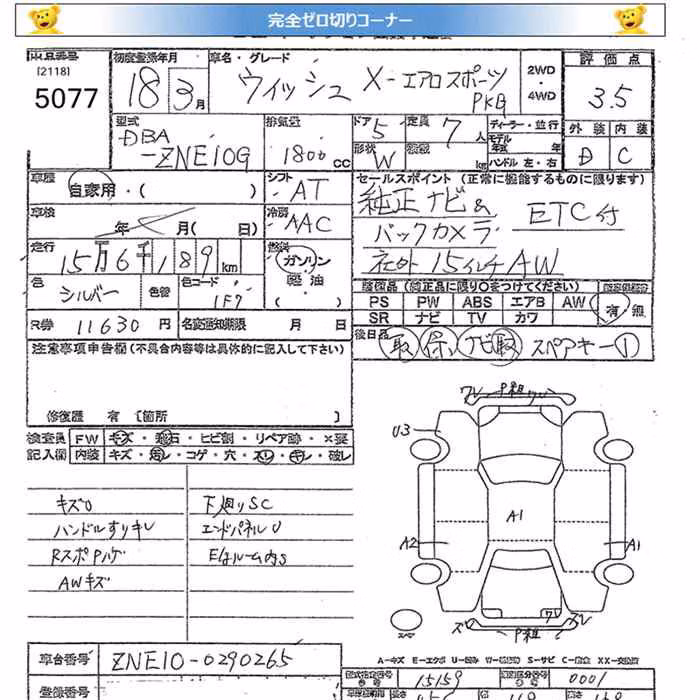 完全ゼロ切りコーナー
[2118]
5077
初度登録年月
18年 3月
車名・グレード
ウィッシュ X-エアロスポーツ
PKG
2WD
・4WD
評価点
3.5
外装 内装
D C
型式
DBA
-ZNE10G
排気量
1800cc
ドア 5 定員 7人
形状 W 積載 kg
ディーラー・並行
モデル年式 年
ハンドル 左・右
車歴 自家用・( )
シフト AT
車検 年 月( 日)
冷房 AAC
走行 15万6千189km
燃料 ガソリン
軽油
色 シルバー 色替 色コード 1F7
R券 11630円 名変通知期限 月 日
セールスポイント (正常に機能するものに限ります)
純正ナビ& ETC付
バックカメラ
社外15インチAW
装備品 (純正品に限り○をつけてください)
PS PW ABS エアB AW
SR ナビ TV カワ
有・無
後日品 取 保 ナビ取 スペアキー①
注意事項申告欄(不具合内容等は具体的に記入して下さい)
修復歴 有 [箇所 ]
検査員 FW キズ・飛石・ヒビ割・リペア跡・×要
記入欄 内装 キズ・汚レ・コゲ・穴・スリ・キレ・破レ
キズU 下廻りSC
ハンドルすりキレ エンドパネルU
RスポPハゲ Egルーム内S
AWキズ
U3
A1
A2
A1
P粗
A-キズ E-エクボ U-凹み W-補修跡 S-サビ C-腐食 XX-交換済
車台番号 ZNE10-0290265
登録番号
型式指定番号 15159 類別区分番号 0001